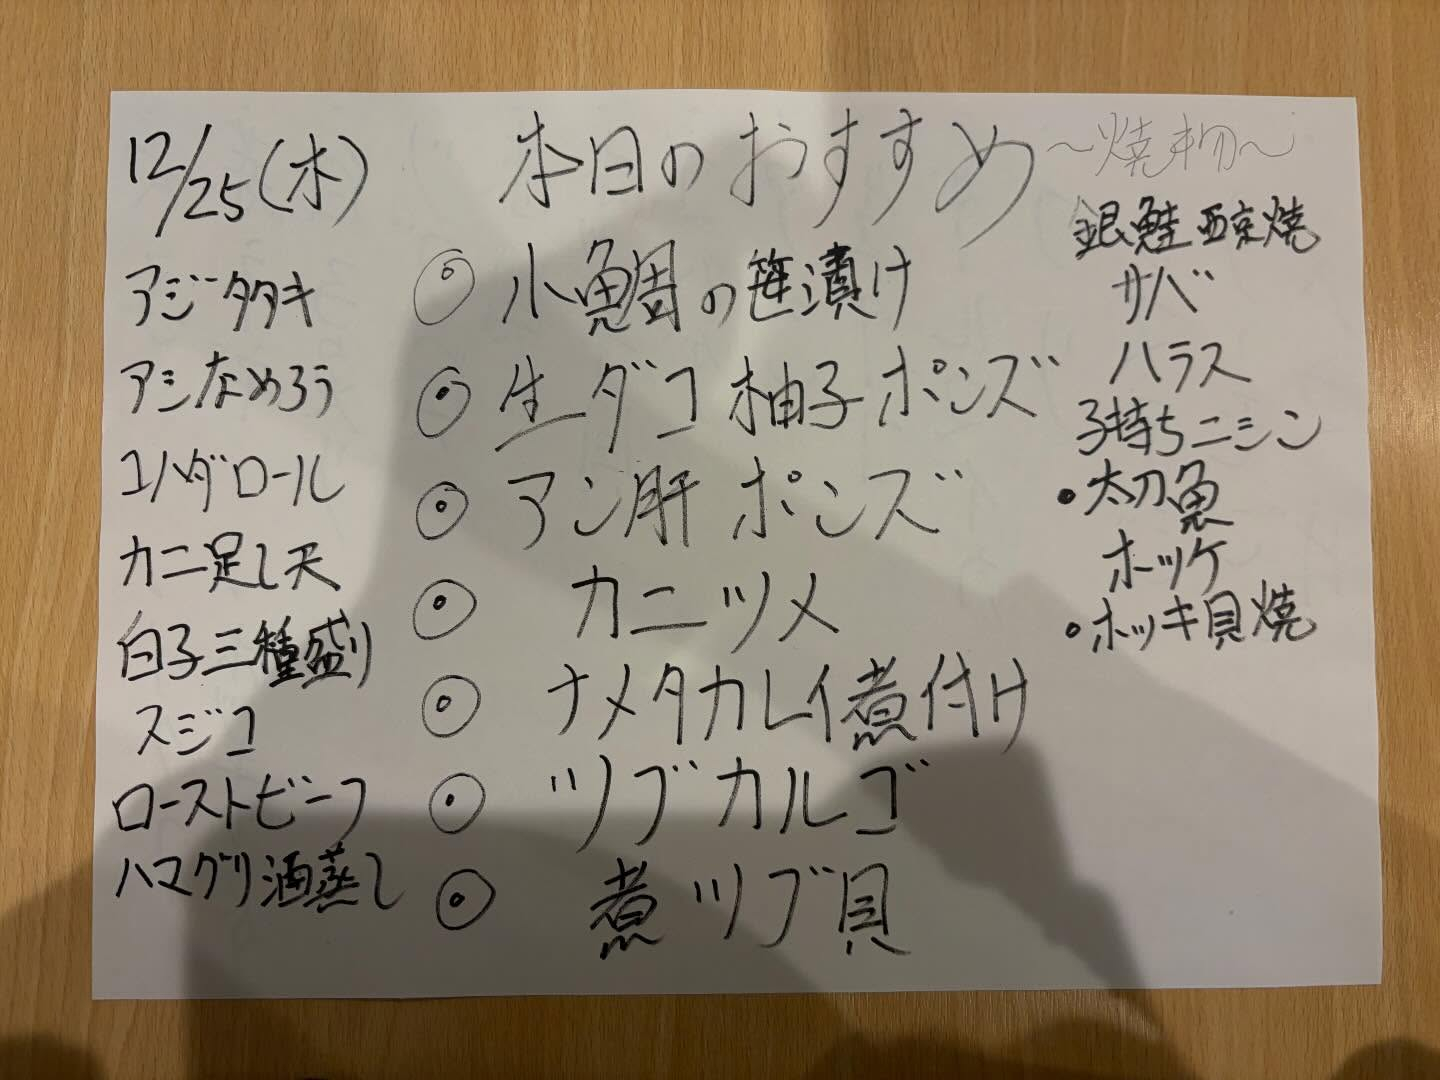 12/25(木)
アジータタキ
アシなめろう
コハダロール
カニ足し天
白子三種盛り
スジコ
ローストビーフ
ハマグリ酒蒸し
本日のおすすめ
◎ 小鯛の笹漬け
◎ 生ダコ 柚子ポンズ
◎ アン肝 ポンズ
◎ カニツメ
◎ ナメタカレイ煮付け
◎ ツブカルゴ
◎ 煮ツブ貝
～焼き物～
銀鮭西京焼
サバ
ハラス
子持ちニシン
・太刀魚
ホッケ
・ホッキ貝焼